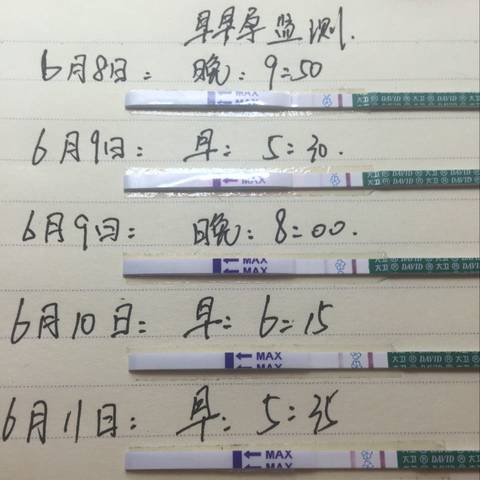 早早孕监测.
6月8日: 晚: 9:50
MAX
MAX
大卫 DAVID 大卫 DAVID
6月9日: 早: 5:30.
MAX
大卫 DAVID 大卫 DAVID
6月9日: 晚: 8:00.
MAX
MAX
大卫 DAVID 大卫 DAVID
6月10日: 早: 6:15
MAX
MAX
大卫 DAVID 大卫
6月11日: 早: 5:35
MAX
MAX
大卫 DAVID 大卫